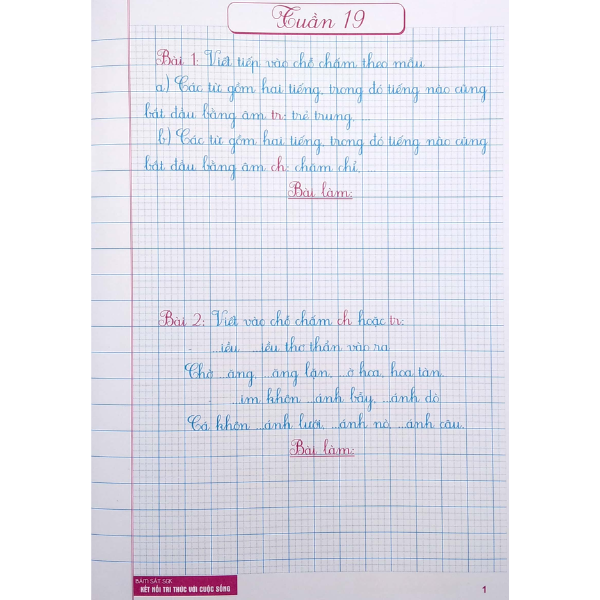 Tuần 19
Bài 1: Viết tiếp vào chỗ chấm theo mẫu
a) Các từ gồm hai tiếng, trong đó tiếng nào cũng
bắt đầu bằng âm tr: trẻ trung, ...
b) Các từ gồm hai tiếng, trong đó tiếng nào cũng
bắt đầu bằng âm ch: chăm chỉ, ...
Bài làm:
Bài 2: Viết vào chỗ chấm ch hoặc tr:
- ...iều ...iều thơ thẩn vào ra
Chờ ...ăng ...ăng lặn, ...ờ hoa, hoa tàn.
- ...im khôn ...ánh bẫy, ...ánh dò
Cá khôn ...ánh lưới, ...ánh nò, ...ánh câu.
Bài làm:
BÁM SÁT SGK
KẾT NỐI TRI THỨC VỚI CUỘC SỐNG
1